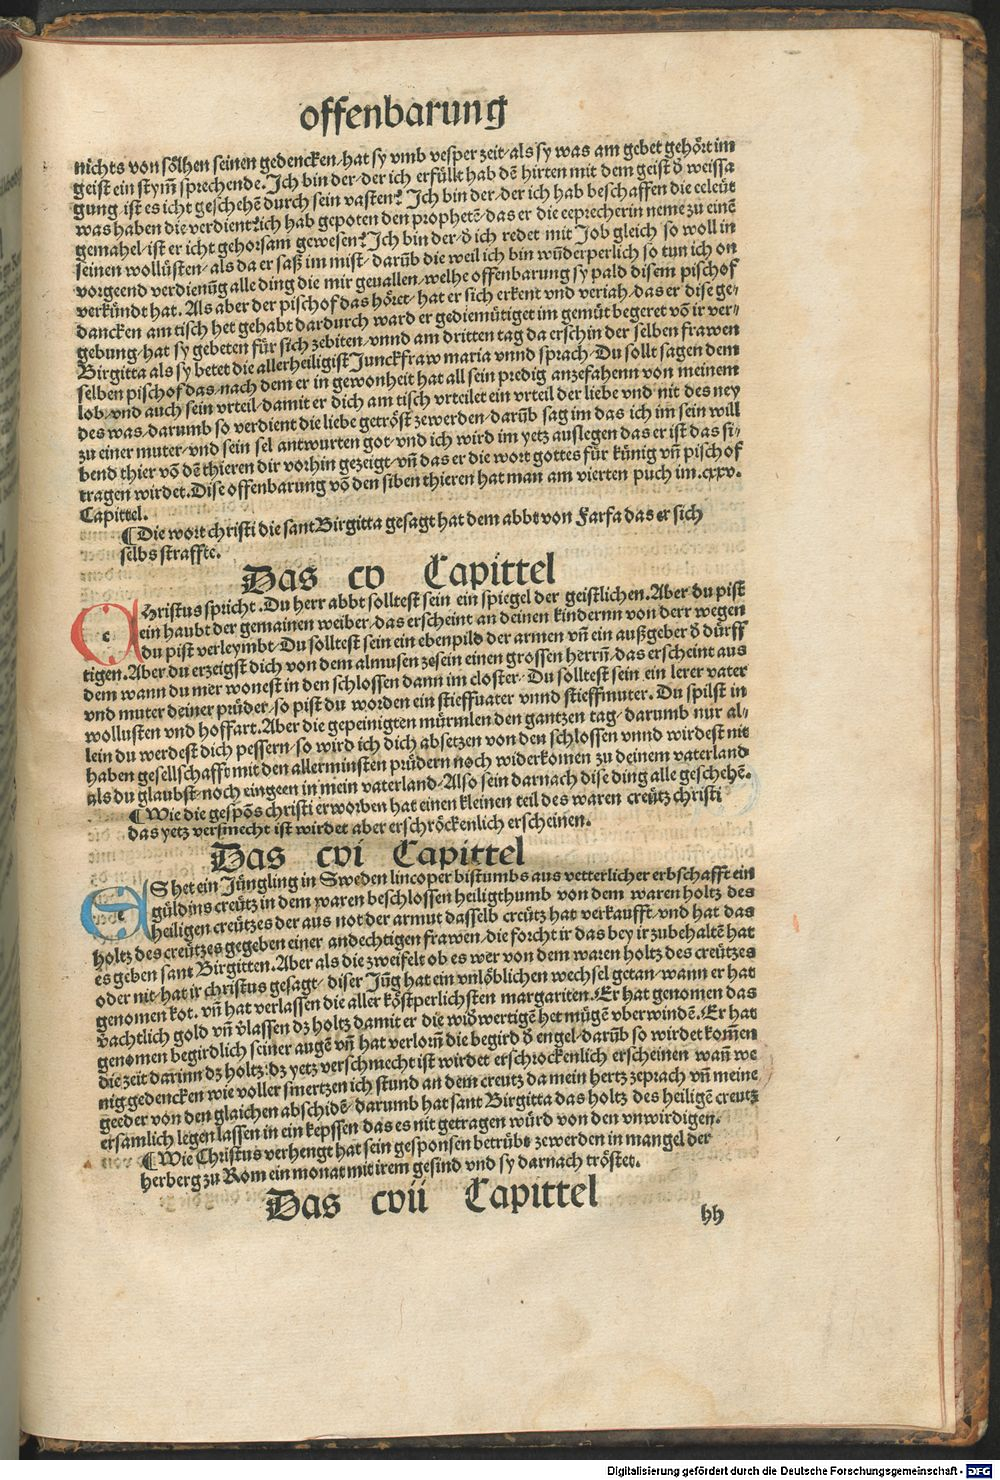 offenbarung
nichts von sölhen seinen gedencken/hat sy vmb vesper zeit/als sy was am gebet gehört im
geist ein stym̃ sprechende. Ich bin der/der ich erfüllt hab dē hirten mit dem geist d̕ weissa
gung/ist es icht geschehē durch sein vasten? Ich bin der/der ich hab beschaffen die eeleüt
was haben die verdient? ich hab gepoten den prophetē/das er die eeprecherin neme zu einē
gemahel/ist er icht gehorsam gewesen? Ich bin der/d̕ ich redet mit Job gleich so woll in
seinen wollüsten/als da er saß im mist/darūb die weil ich bin wūderperlich so tun ich on
vorgeend verdienūg alle ding die mir geuallen/welhe offenbarung sy pald disem pischof
verkündt hat. Als aber der pischof das höret/hat er sich erkent vnd veriah/das er dise ge/
dancken am tisch het gehabt dardurch ward er gediemütiget im gemüt begeret vō ir ver/
gebung/hat sy gebeten für sich zebiten/vnnd am dritten tag da erschin der selben frawen
Birgitta als sy betet die allerheiligist Junckfraw maria vnnd sprach/Du sollt sagen dem
selben pischof das/nach dem er in gewonheit hat all sein predig anzefahenn von meinem
lob/vnd auch sein vrteil/damit er dich am tisch vrteilet ein vrteil der liebe vnd nit des ney
des was/darumb so verdient die liebe getröst zewerden/darūb sag im das ich im sein will
zu einer muter/vnd sein sel antwurten got/vnd ich wird im yetz auslegen das er ist das si/
bend thier vō dē thieren dir vorhin gezeigt/vñ das er die wort gottes für künig vñ pischof
tragen wirdet. Dise offenbarung vō den siben thieren hat man am vierten puch im .cxxv.
Capittel.
¶ Die wort christi die sant Birgitta gesagt hat dem abbt von Farfa das er sich
selbs straffte.
Das cv Capittel
Christus spricht. Du herr abbt solltest sein ein spiegel der geistlichen. Aber du pist
ein haubt der gemainen weiber/das erscheint an deinen kindernn von derr wegen
du pist verleymbt/Du solltest sein ein ebenpild der armen vñ ein außgeber d̕ dürff
tigen. Aber du erzeigst dich von dem almusen zesein einen grossen herrñ/das erscheint aus
dem wann du mer wonest in den schlossen dann im closter/Du solltest sein ein lerer vater
vnd muter deiner prüder/so pist du worden ein stieffuater vnnd stieffmuter. Du spilst in
wollusten vnd hoffart. Aber die gepeinigten mürmlen den gantzen tag/darumb nur al/
lein du werdest dich pessern/so wird ich dich absetzen von den schlossen vnnd wirdest nit
haben gesellschafft mit den allerminsten prüdern noch widerkomen zu deinem vaterland
als du glaubst/noch eingeen in mein vaterland/Also sein darnach dise ding alle geschehē.
¶ Wie die gespōs christi erworben hat einen kleinen teil des waren creütz christi
das yetz versmecht ist wirdet aber erschröckenlich erscheinen.
Das cvi Capittel
ES het ein Jüngling in Sweden lincoper bistumbs aus vetterlicher erbschafft ein
güldins creütz in dem waren beschlossen heiligthumb von dem waren holtz des
heiligen creützes der aus not der armut dasselb creütz hat verkaufft/vnd hat das
holtz des creützes gegeben einer andechtigen frawen/die forcht ir das bey ir zubehaltē hat
es geben sant Birgitten. Aber als die zweifelt ob es wer von dem waren holtz des creützes
oder nit/hat ir christus gesagt/diser Jūg hat ein vnlöblichen wechsel getan/wann er hat
genomen kot. vñ hat verlassen die aller köstperlichsten margariten. Er hat genomen das
vachtlich gold vñ v̕lassen dz holtz damit er die wid̕wertigē het mügē vberwindē. Er hat
genomen begirdlich seiner augē vñ hat verlorn̄ die begird d̕ engel/darūb so wirdet kom̄en
die zeit darinn dz holtz: dz yetz verschmecht ist wirdet erschrockenlich erscheinen wañ we
nig gedencken wie voller smertzen ich stund an dem creutz da mein hertz zeprach vñ meine
geeder von den glaichen abschidē/darumb hat sant Birgitta das holtz des heiligē creutz
ersamlich legen lassen in ein kepssen das es nit getragen würd von den vnwirdigen.
¶ Wie Christus verhengt hat sein gesponsen betrübt zewerden in mangel der
herberg zu Rom ein monat mit irem gesind vnd sy darnach tröstet.
Das cvii Capittel
hh
Digitalisierung gefördert durch die Deutsche Forschungsgemeinschaft - DFG